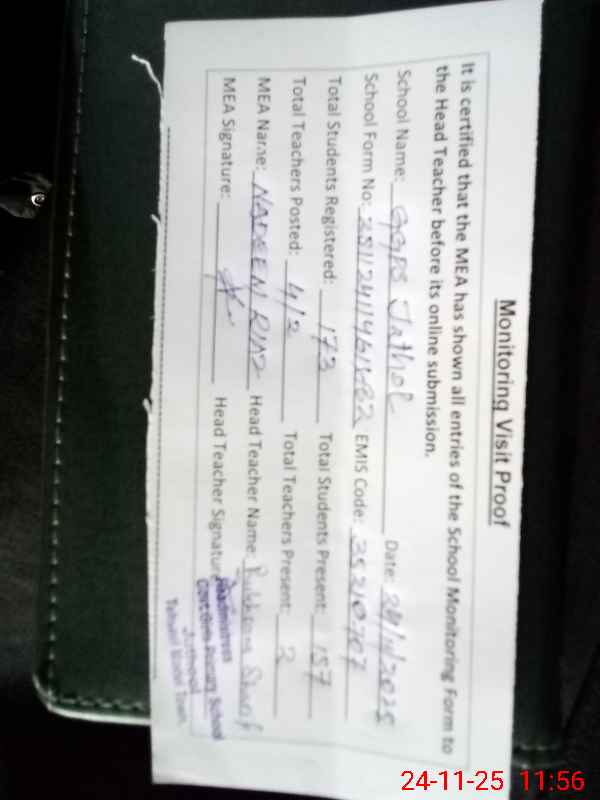 Monitoring Visit Proof
It is certified that the MEA has shown all entries of the School Monitoring Form to
the Head Teacher before its online submission.
School Name: GGPS Jathol Date: 24/11/2025
School Form No: EMIS Code: 35210707
Total Students Registered: 173 Total Students Present: 157
Total Teachers Posted: 4/2 Total Teachers Present: 2
MEA Name: NADEEN RIAZ Head Teacher Name:
MEA Signature: Head Teacher Signature
Headmistress
Govt. Girls Primary School
Tehsil Model Town
24-11-25 11:56